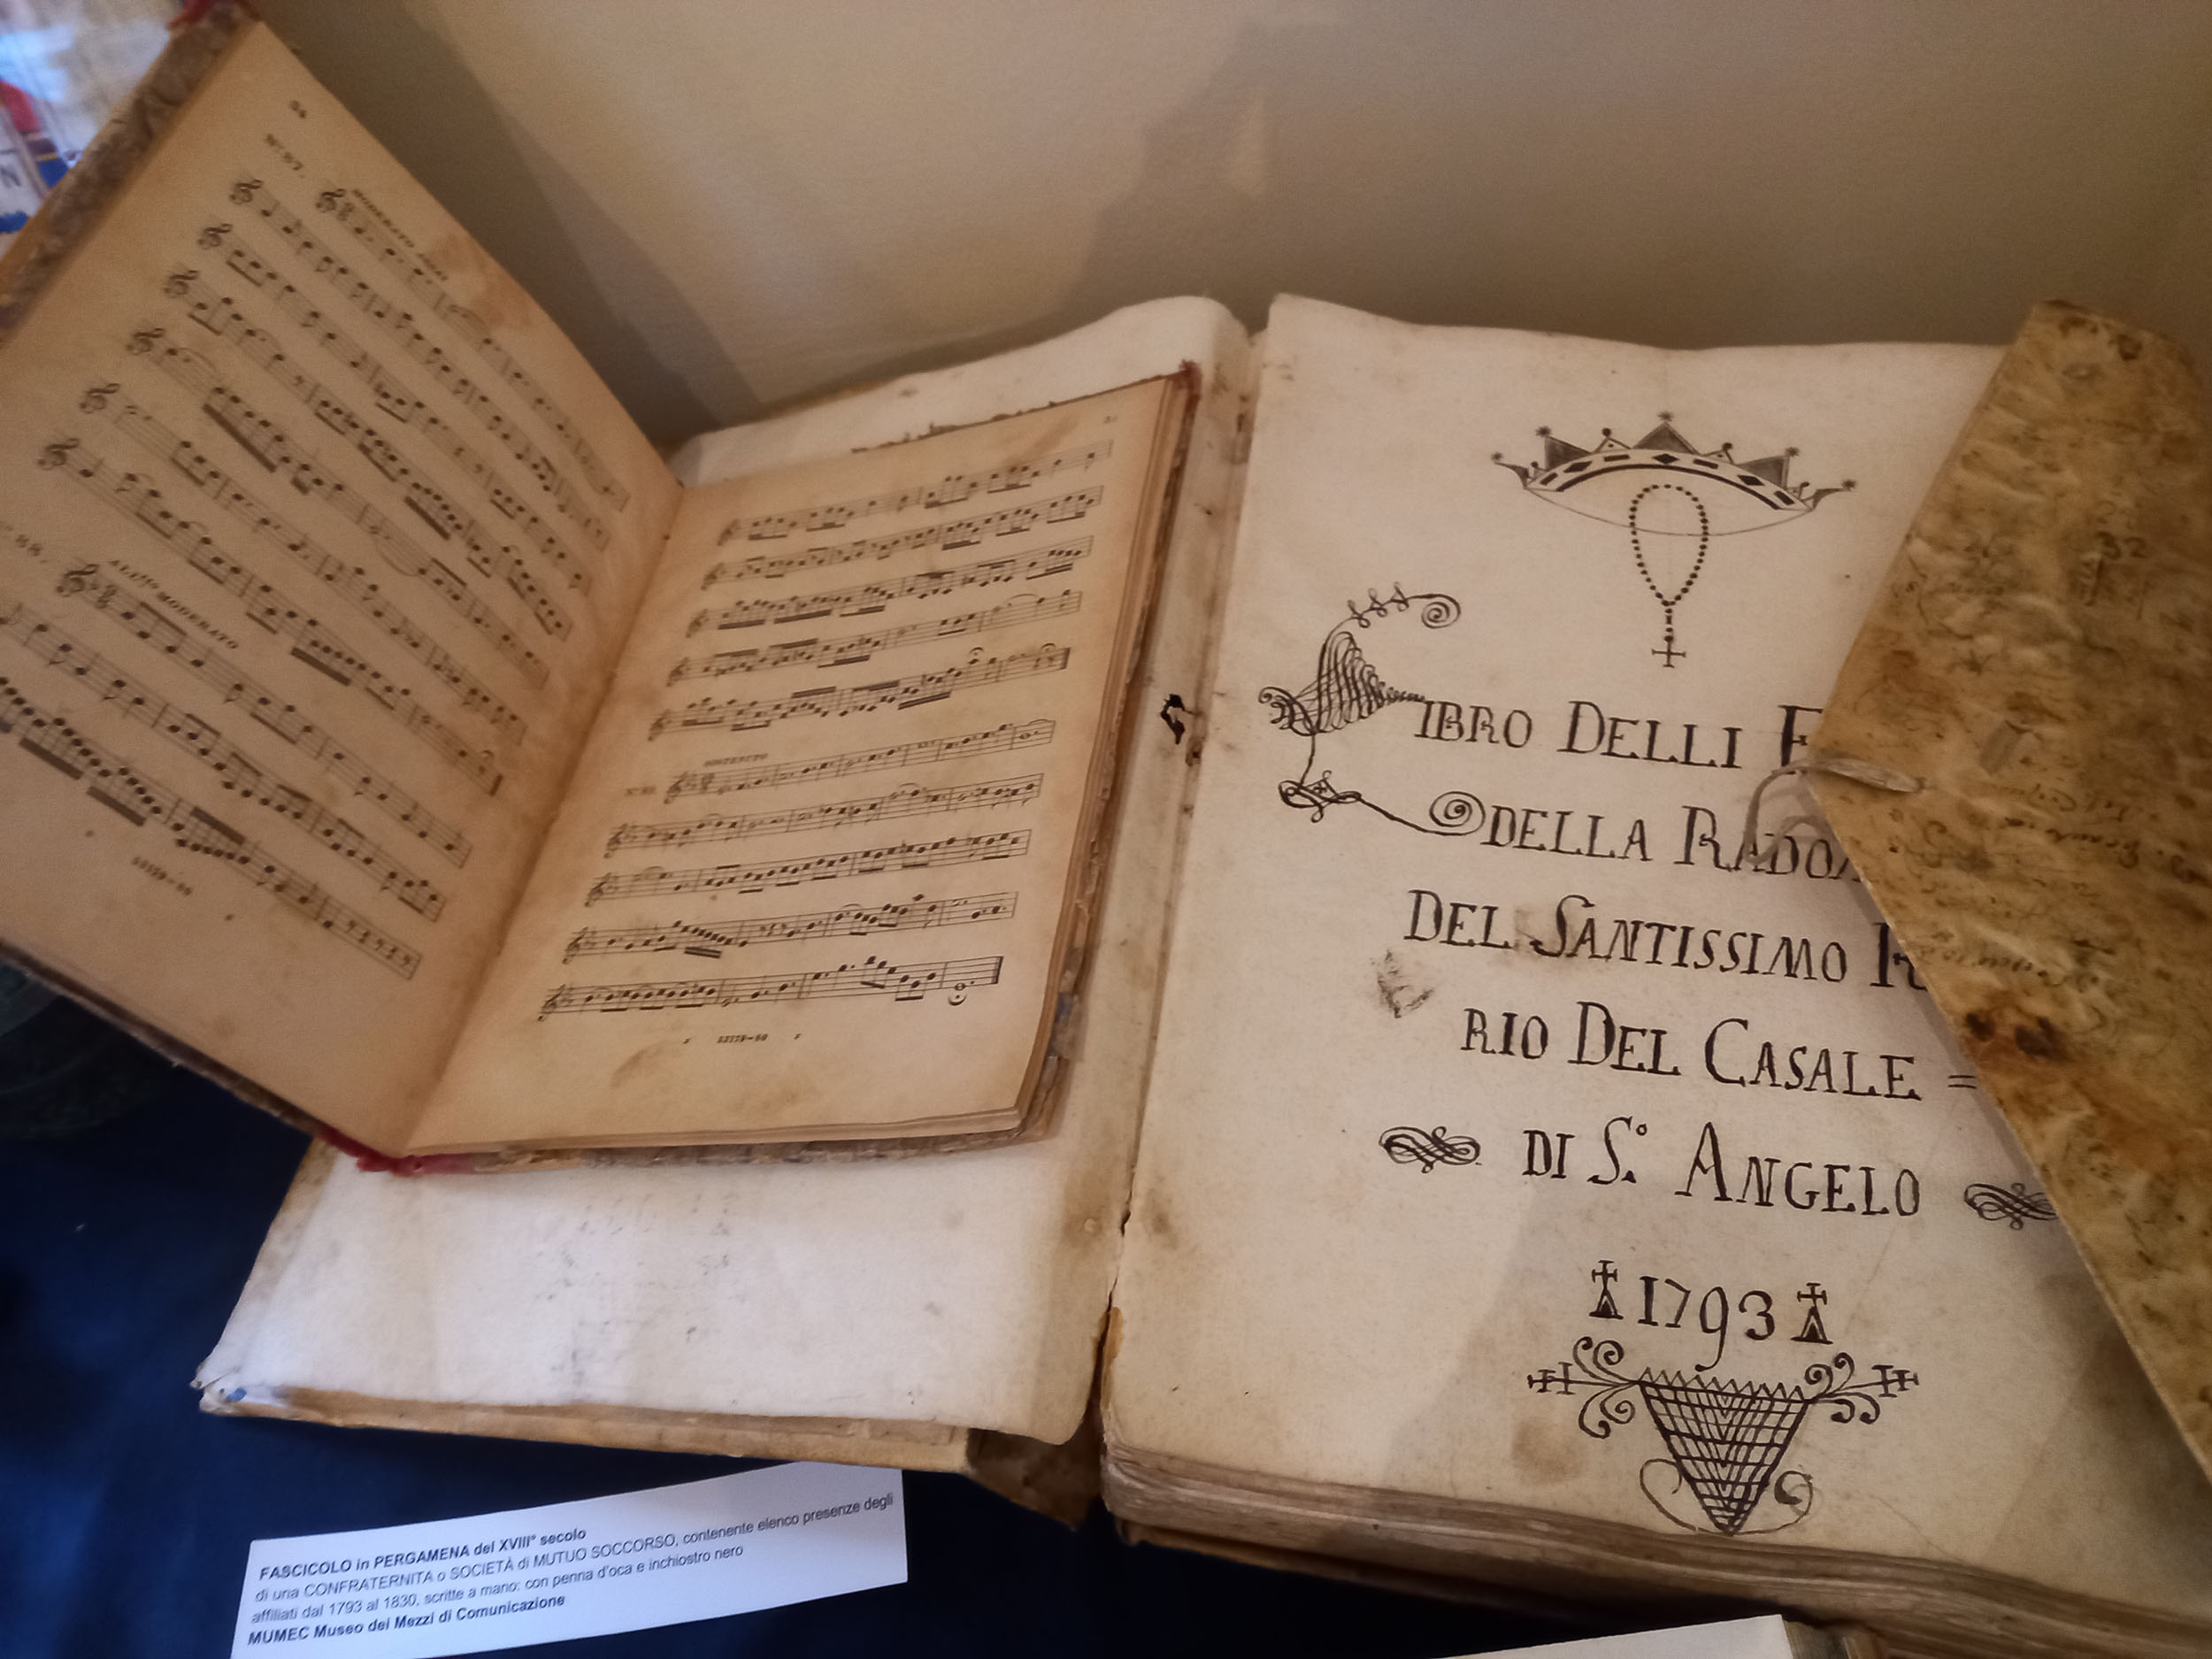 34
N.º 87.
MODERATO ASSAI
ALL.tto MODERATO
SOSTENUTO
LIBRO DELLI
DELLA
DEL SANTISSIMO
RIO DEL CASALE =
DI S.º ANGELO
1793
FASCICOLO in PERGAMENA del XVIII° secolo
di una CONFRATERNITA o SOCIETÀ di MUTUO SOCCORSO, contenente elenco presenze degli
affiliati dal 1793 al 1830, scritte a mano: con penna d'oca e inchiostro nero
MUMEC Museo dei Mezzi di Comunicazione